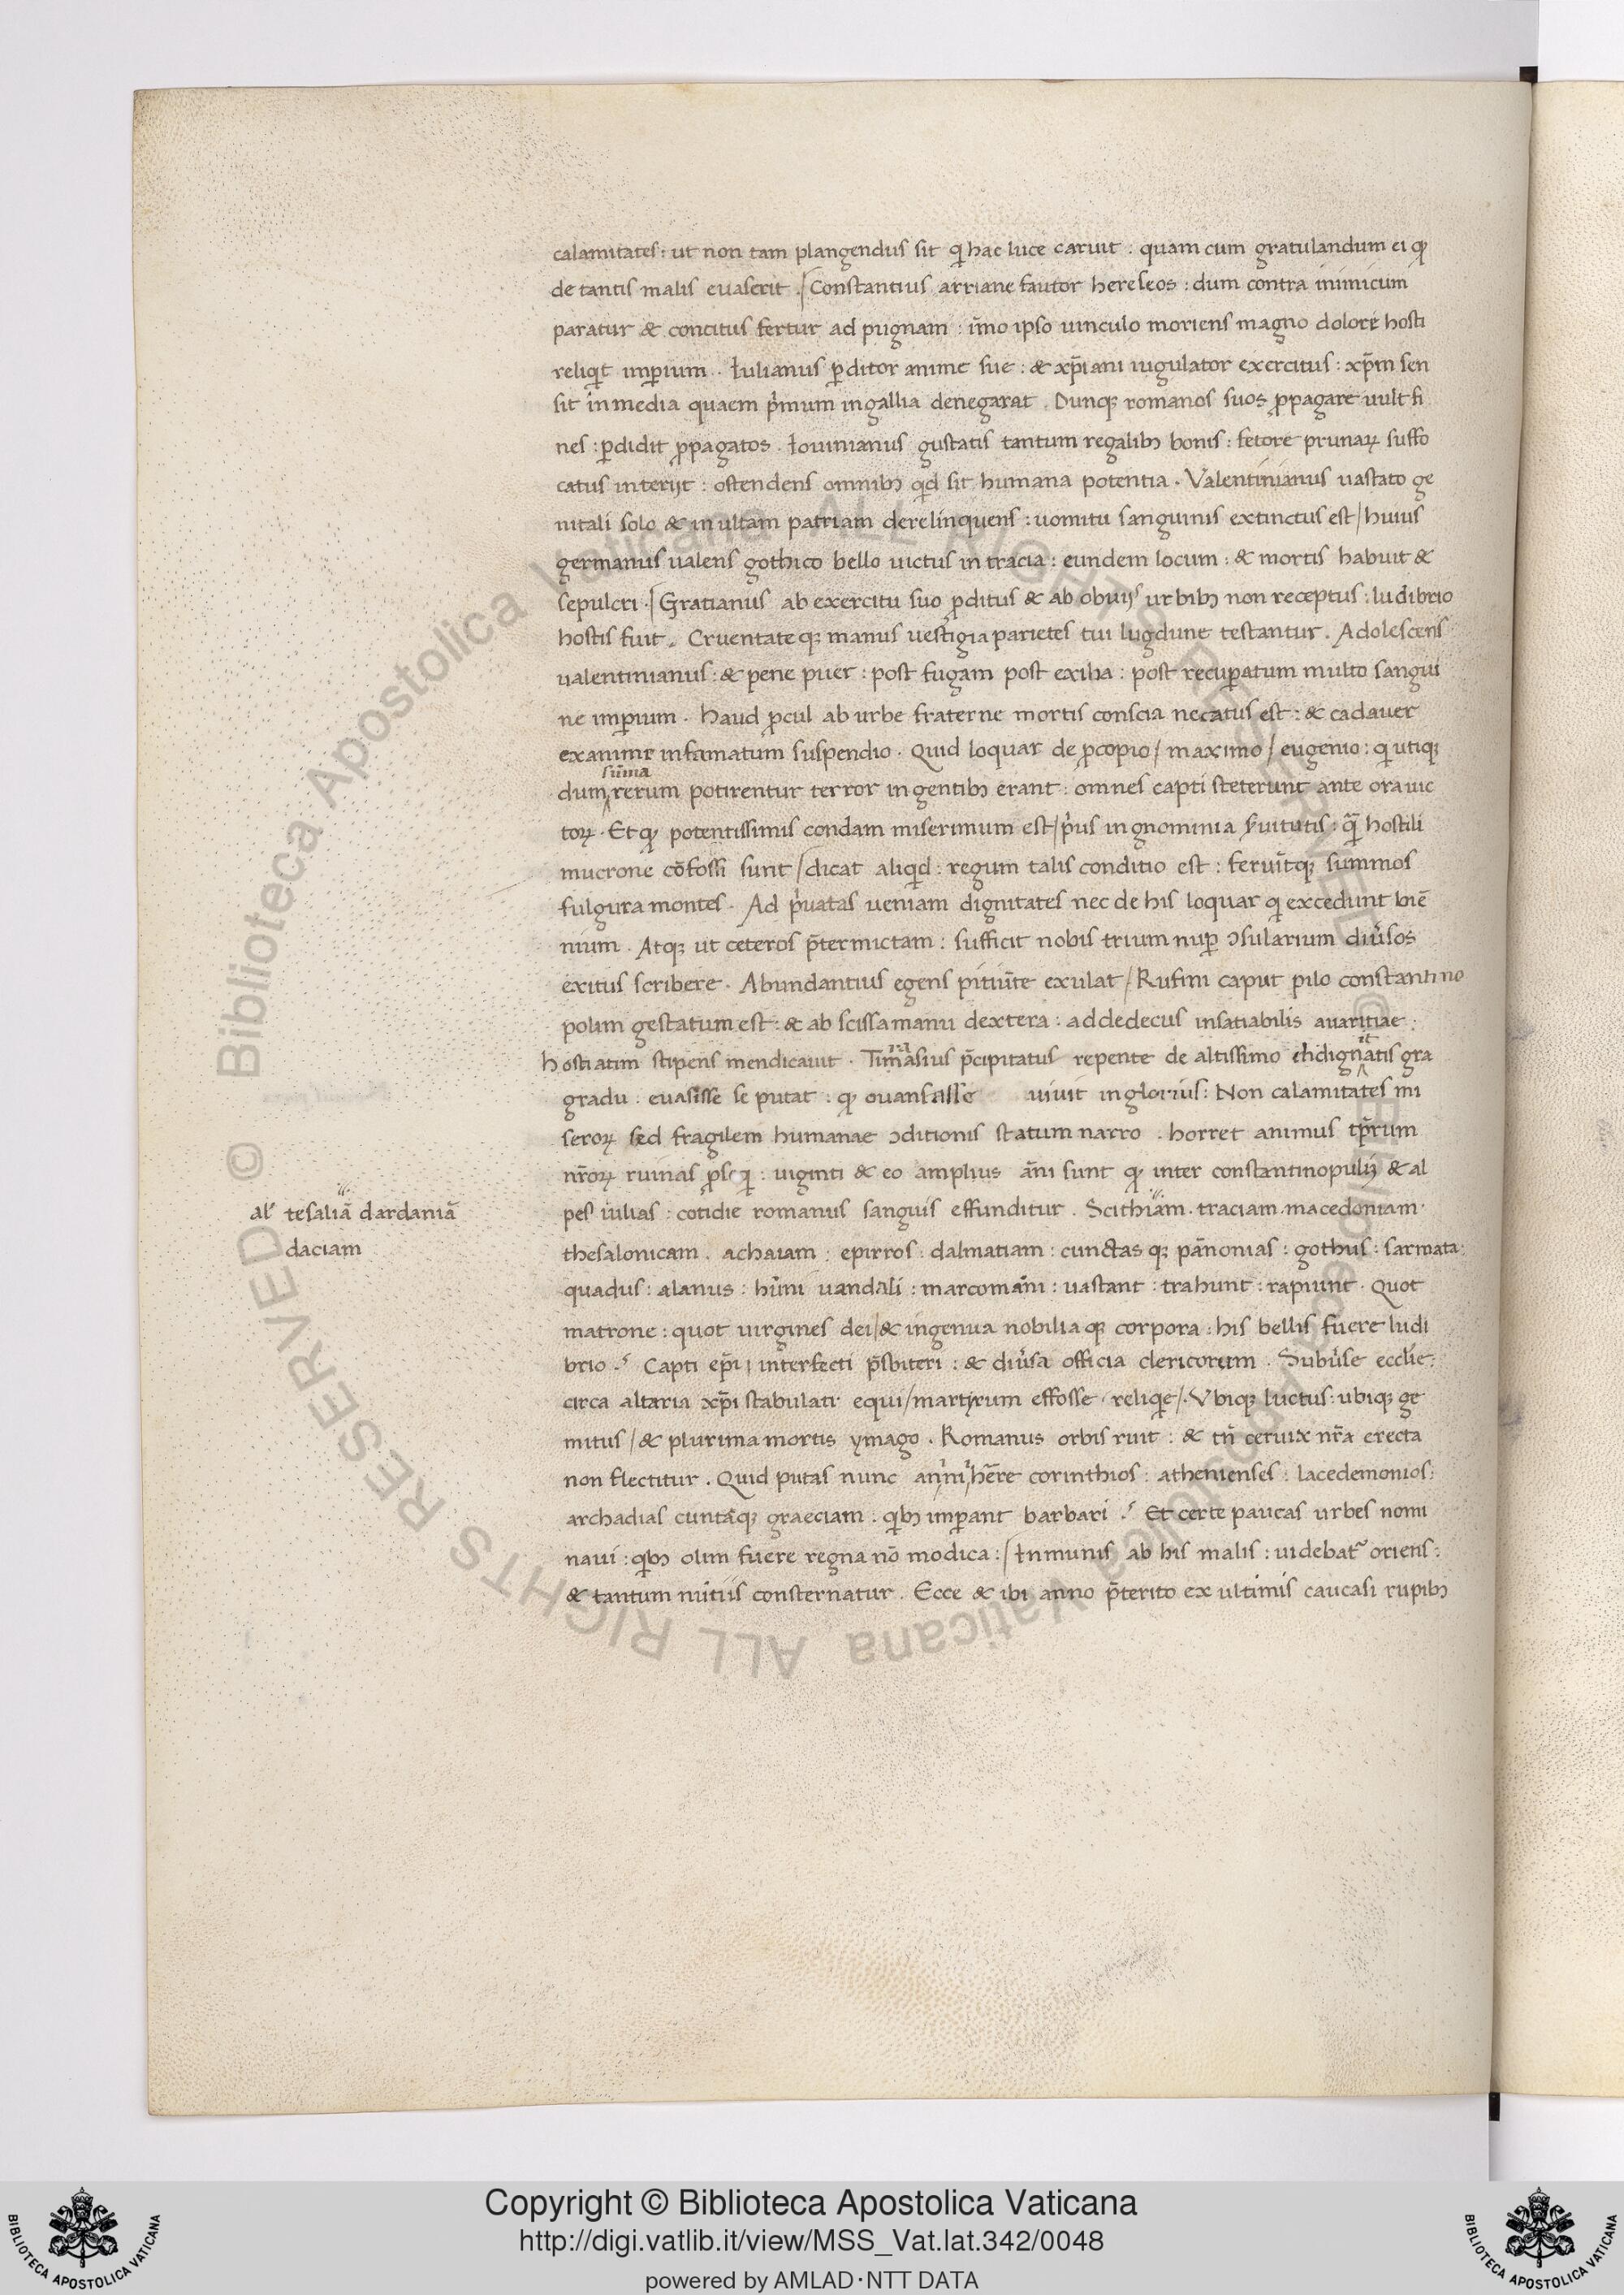 calamitates: ut non tam plangendus sit qi hac luce caruit: quam cum gratulandum ei qꝫ
de tantis malis euaserit. / Constantius arriane fautor hereseos: dum contra inimicum
paratur & concitus fertur ad pugnam: īmo ipso uinculo moriens magno dolore hosti
reliqͥt imꝑium. Iulianus ꝑditor anime sue: & xp̄iani iugulator exercitus: xp̄m sen
sit in media quaem pͥmum in gallia denegarat. Dunqꝫ romanos suos ꝓpagare uult fi
nes: ꝑdidit ꝓpagatos. Iouinianus gustatis tantum regalibꝫ bonis: fetore prunaꝝ suffo
catus interijt: ostendens omnibꝫ qͥd sit humana potentia. Valentinianus uastato ge
nitali solo & in ultam patriam derelinquens: uomitu sanguinis extinctus est / huius
germanus ualens gothico bello uictus in tracia: eundem locum: & mortis habuit &
sepulcri. / Gratianus ab exercitu suo ꝓditus & ab obuijs urbibꝫ non receptus: ludibrio
hostis fuit. Cruentate qꝫ manus uestigia parietes tui lugdune testantur. Adolescens
ualentinianus: & pene puer: post fugam post exilia: post recuꝑatum multo sangui
ne imꝑium. haud ꝓcul ab urbe fraterne mortis conscia necatus est: & cadauer
exanime infamatum suspendio. Quid loquar de ꝓcopio / maximo / eugenio: qi utiqꝫ
sūma
dum rerum potirentur terror in gentibꝫ erant: omnes capti steterunt ante ora uic
toꝝ. Et qꝫ potentissimis condam miserimum est / pͥus in gnominia ẜuitutis: qͣ̄ hostili
mucrone cōfossi sunt / dicat aliqͥd: regum talis conditio est: feruītqꝫ summos
fulgura montes. Ad pͥuatas ueniam dignitates nec de his loquar qi excedunt biē
nium. Atqꝫ ut ceteros p̄termictam: sufficit nobis trium nuꝑ ↄsularium diu̾sos
exitus scribere. Abundantius egens pitiūte exulat / Rufini caput pilo constantino
polim gestatum est: & ab scissa manu dextera: ad dedecus insatiabilis auaritiae:
hostiatim stipens mendicauit. Timasius p̄cipitatus repente de altissimo dignatis gra
it
gradu: euasisse se putat: qꝫ ouans asse uiuit inglorius: Non calamitates mi
seroꝝ sed fragilem humanae ↄditionis statum narro. horret animus tꝑ̄rum
nr̄oꝝ ruinas ꝓseqi: uiginti & eo amplius āni sunt qꝫ inter constantinopulī & al
pes iulias: cotidie romanus sanguis effunditur. Scithiam. traciam. macedoniam.
al' tesaliā dardaniā
daciam
thesalonicam. achaiam: epirros: dalmatiam: cunctas qꝫ pānonias: gothus: sarmata:
quadus: alanus: hūni uandali: marcomāni: uastant: trahunt: rapiunt. Quot
matrone: quot uirgines dei / & ingenua nobilia qꝫ corpora: his bellis fuere ludi
brio? Capti ep̄i / interfecti p̄sbiteri: & diu̾sa officia clericorum. Subu̾se eccl̄ie:
circa altaria xp̄i stabulati equi / martyrum effosse reliqͥe /. Vbiqꝫ luctus: ubiqꝫ ge
mitus / & plurima mortis ymago. Romanus orbis ruit: & tn̄ ceruix nr̄a erecta
non flectitur. Quid putas nunc hēre corinthios: athenienses: lacedemonios:
archadias cuntāqꝫ graeciam: qͥbꝫ imꝑant barbari? Et certe paucas urbes nomi
naui: qͥbꝫ olim fuere regna nō modica: / Inmunis ab his malis: uidebatᷣ oriens:
& tantum nūtiis consternatur. Ecce & ibi anno p̄terito ex ultimis caucasi rupibꝫ
Copyright © Biblioteca Apostolica Vaticana
http://digi.vatlib.it/view/MSS_Vat.lat.342/0048
powered by AMLAD·NTT DATA
BIBLIOTECA APOSTOLICA VATICANA
BIBLIOTECA APOSTOLICA VATICANA
© Biblioteca Apostolica Vaticana ALL RIGHTS RESERVED
© Biblioteca Apostolica Vaticana ALL RIGHTS RESERVED